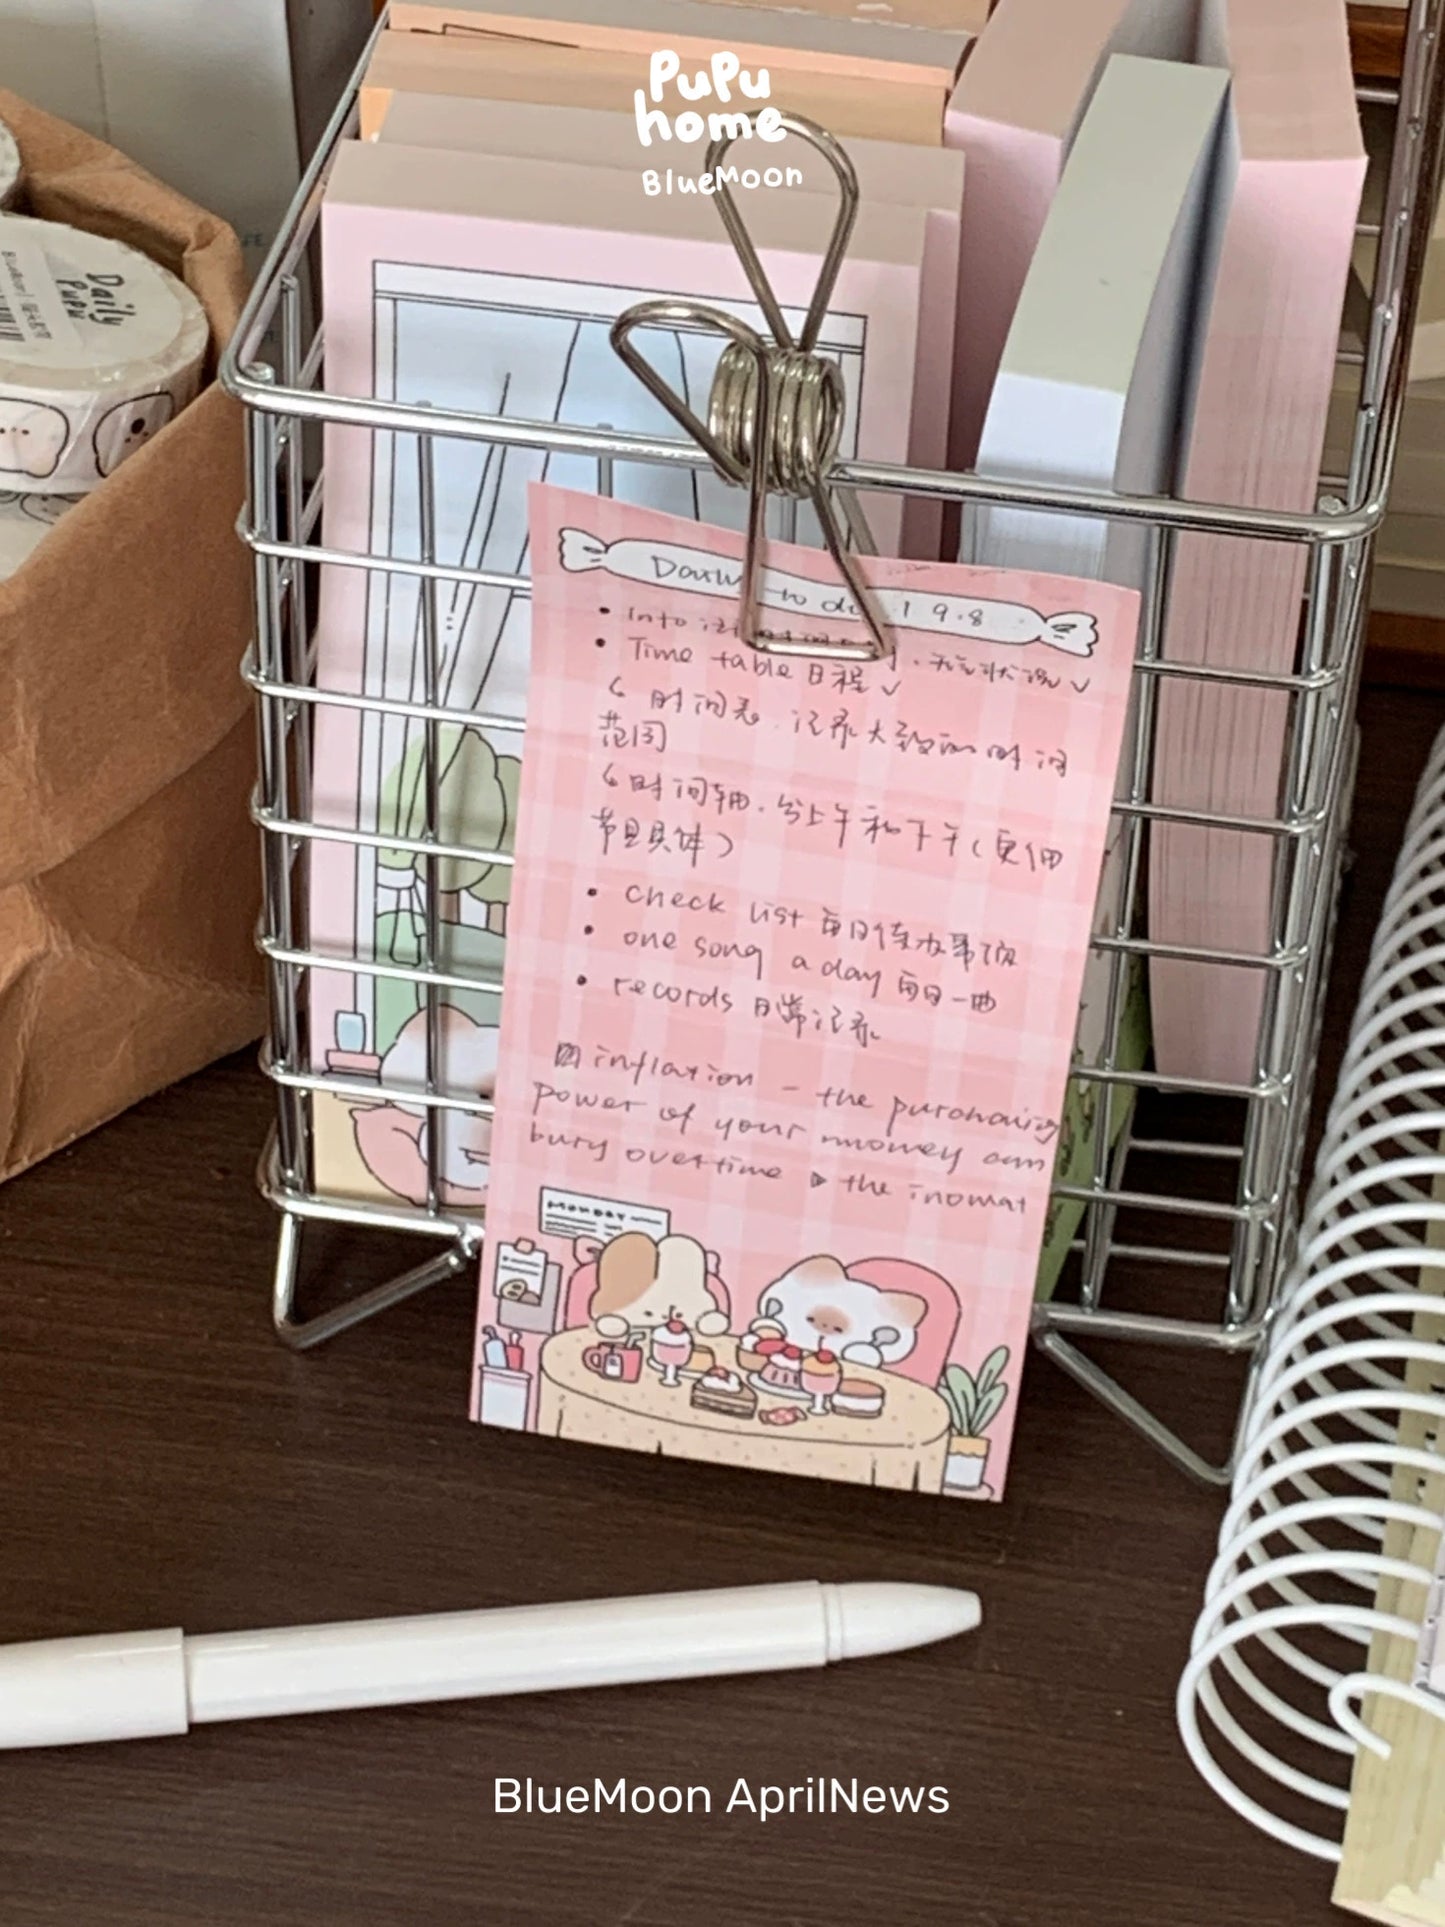 PuPu
home
BlueMoon
Daily
PuPu
BlueMoon
Daily to do 1 9.8
• Into
• Time table 日程 ✓
时间表. 记录大致的时间
范围
时间轴. 分上午和下午(更细
节且具体)
• check list 每日待办事项
• one song a day 每日一曲
• records 日常记录
inflation - the purchasing
power of your money can
bury overtime ▷ the
monday
BlueMoon AprilNews